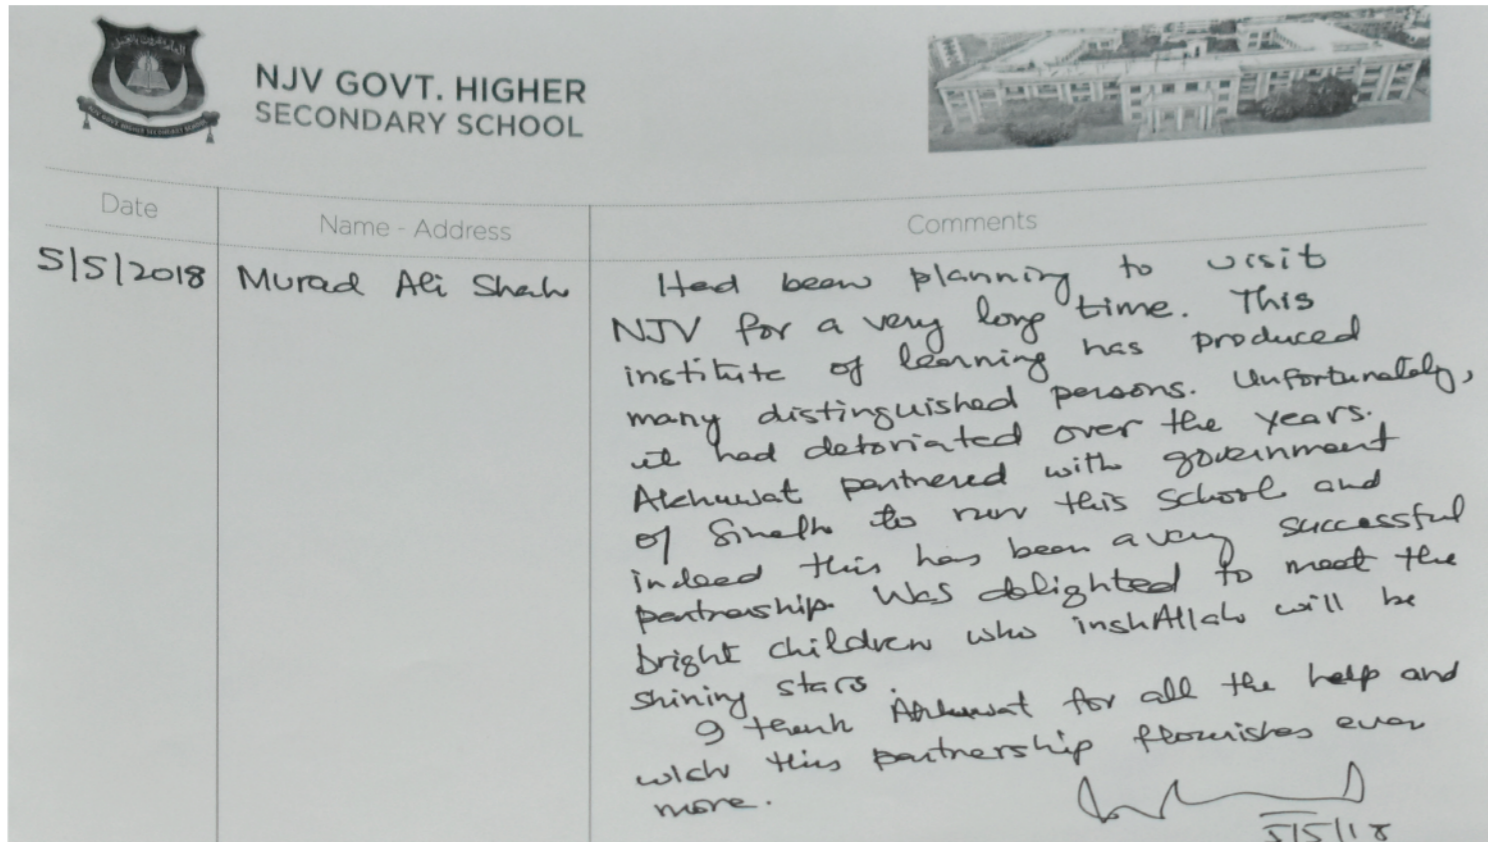 NJV GOVT. HIGHER
SECONDARY SCHOOL
Date
Name - Address
Comments
5/5/2018
Murad Ali Shah
Had been planning to visit
NJV for a very long time. This
institute of learning has produced
many distinguished persons. Unfortunately,
it had detoriated over the years.
Akhuwat partnered with government
of Sindh to run this school and
indeed this has been a very successful
partnership. Was delighted to meet the
bright children who inshAllah will be
shining stars.
I thank Akhuwat for all the help and
wish this partnership flourishes even
more.
5/5/18